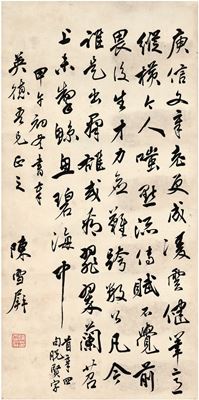 庾信文章老更成凌雲健筆意
縱橫今人嗤點流傳賦不覺前
畏後生才力應難跨數公凡今
誰是出群雄或看翡翠蘭苕
上未掣鯨魚碧海中
首章四
句脱賢字
甲午初夏書奉
英德兄正之
陳雪屏